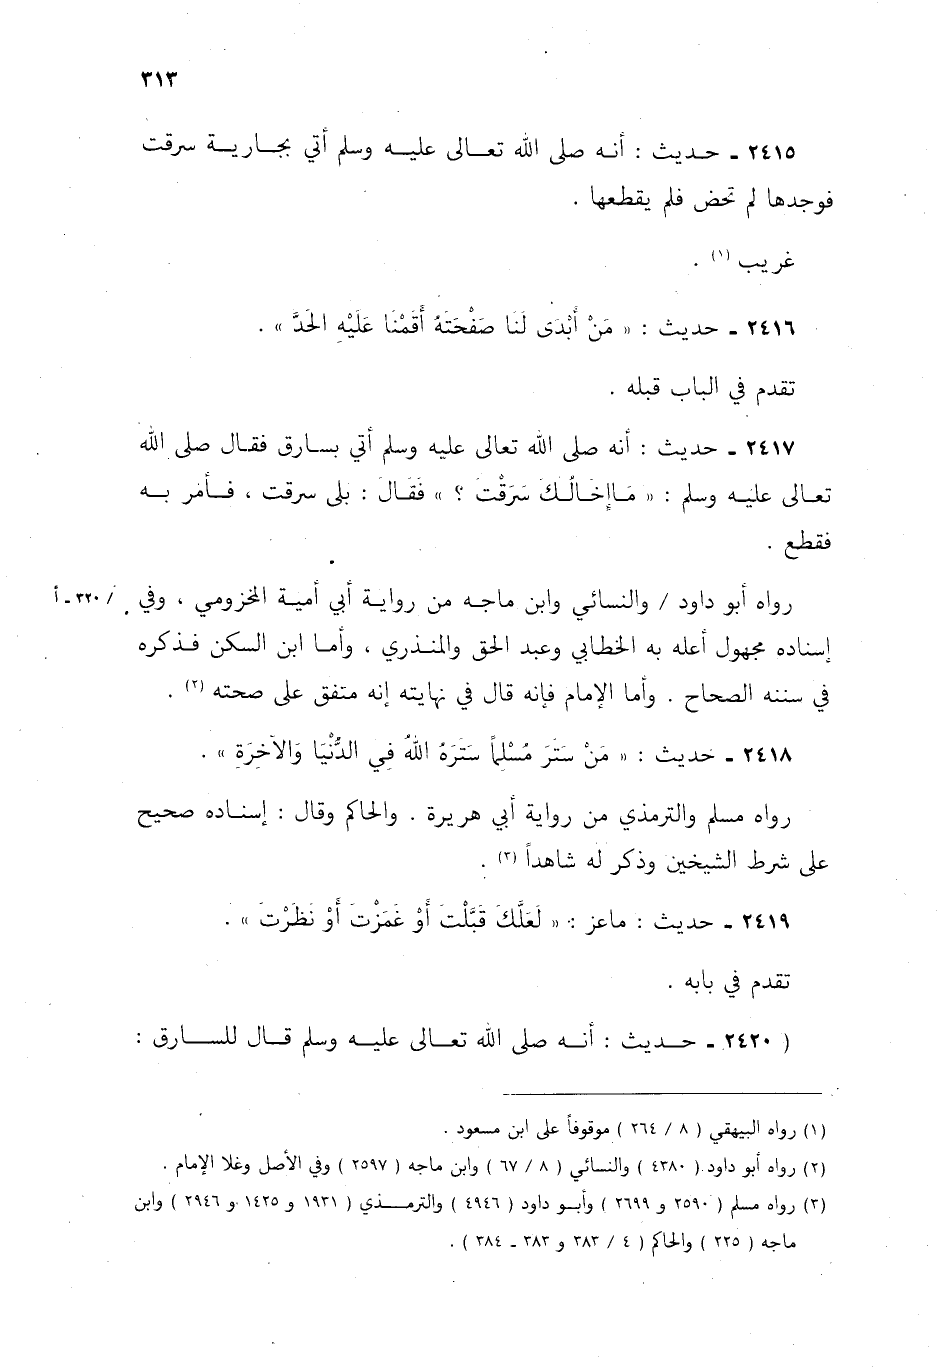 ٣١٣
٢٤١٥ ـ حديث : أنه صلى الله تعالى عليه وسلم أتي بجارية سرقت
فوجدها لم تحض فلم يقطعها .
غريب (١) .
٢٤١٦ ـ حديث : « مَنْ أَبْدَى لَنَا صَفْحَتَهُ أَقَمْنَا عَلَيْهِ الحَدَّ » .
تقدم في الباب قبله .
٢٤١٧ ـ حديث : أنه صلى الله تعالى عليه وسلم أتي بسارق فقال صلى الله
تعالى عليه وسلم : « مَاإِخَالُكَ سَرَقْتَ ؟ » فَقَالَ : بلى سرقت ، فأمر به
فقطع .
رواه أبو داود / والنسائي وابن ماجه من رواية أبي أمية المخزومي ، وفي / ٣٢٠ ـ أ
إسناده مجهول أعله به الخطابي وعبد الحق والمنذري ، وأما ابن السكن فذكره
في سننه الصحاح . وأما الإمام فإنه قال في نهايته إنه متفق على صحته (٢) .
٢٤١٨ ـ حديث : « مَنْ سَتَرَ مُسْلِماً سَتَرَهُ اللهُ فِي الدُّنْيَا وَالآخِرَةِ » .
رواه مسلم والترمذي من رواية أبي هريرة . والحاكم وقال : إسناده صحيح
على شرط الشيخين وذكر له شاهداً (٣) .
٢٤١٩ ـ حديث : ماعز : « لَعَلَّكَ قَبَّلْتَ أَوْ غَمَزْتَ أَوْ نَظَرْتَ » .
تقدم في بابه .
( ٢٤٢٠ ـ حديث : أنه صلى الله تعالى عليه وسلم قال للسارق :
(١) رواه البيهقي ( ٨ / ٢٦٤ ) موقوفاً على ابن مسعود .
(٢) رواه أبو داود ( ٤٣٨٠ ) والنسائي ( ٨ / ٦٧ ) وابن ماجه ( ٢٥٩٧ ) وفي الأصل وغلا الإمام .
(٣) رواه مسلم ( ٢٥٩٠ و ٢٦٩٩ ) وأبو داود ( ٤٩٤٦ ) والترمذي ( ١٩٣١ و ١٤٢٥ و ٢٩٤٦ ) وابن
ماجه ( ٢٢٥ ) والحاكم ( ٤ / ٣٨٣ و ٣٨٣ ـ ٣٨٤ ) .